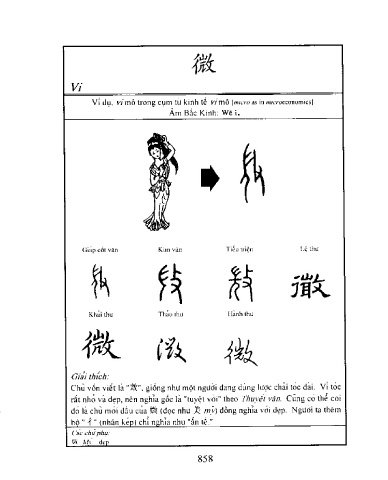 微
Vi
Ví dụ, vi mô trong cụm từ kinh tế vi mô [micro as in microeconomics]
Âm Bắc Kinh: Wēi.
Giáp cốt văn Kim văn Tiểu triện Lệ thư
Khải thư Thảo thư Hành thư
微 微 微
Giải thích:
Chữ vốn viết là "敳", giống như một người đang dùng lược chải tóc dài. Vì tóc
rất nhỏ và đẹp, nên nghĩa gốc là "tuyệt vời" theo Thuyết văn. Cũng có thể coi
đó là chữ mới đầu của (đọc như 美 mỹ) đồng nghĩa với đẹp. Người ta thêm
bộ "彳" (nhân kép) chỉ nghĩa như "ẩn tê."
Các chữ phụ:
đẹp
858